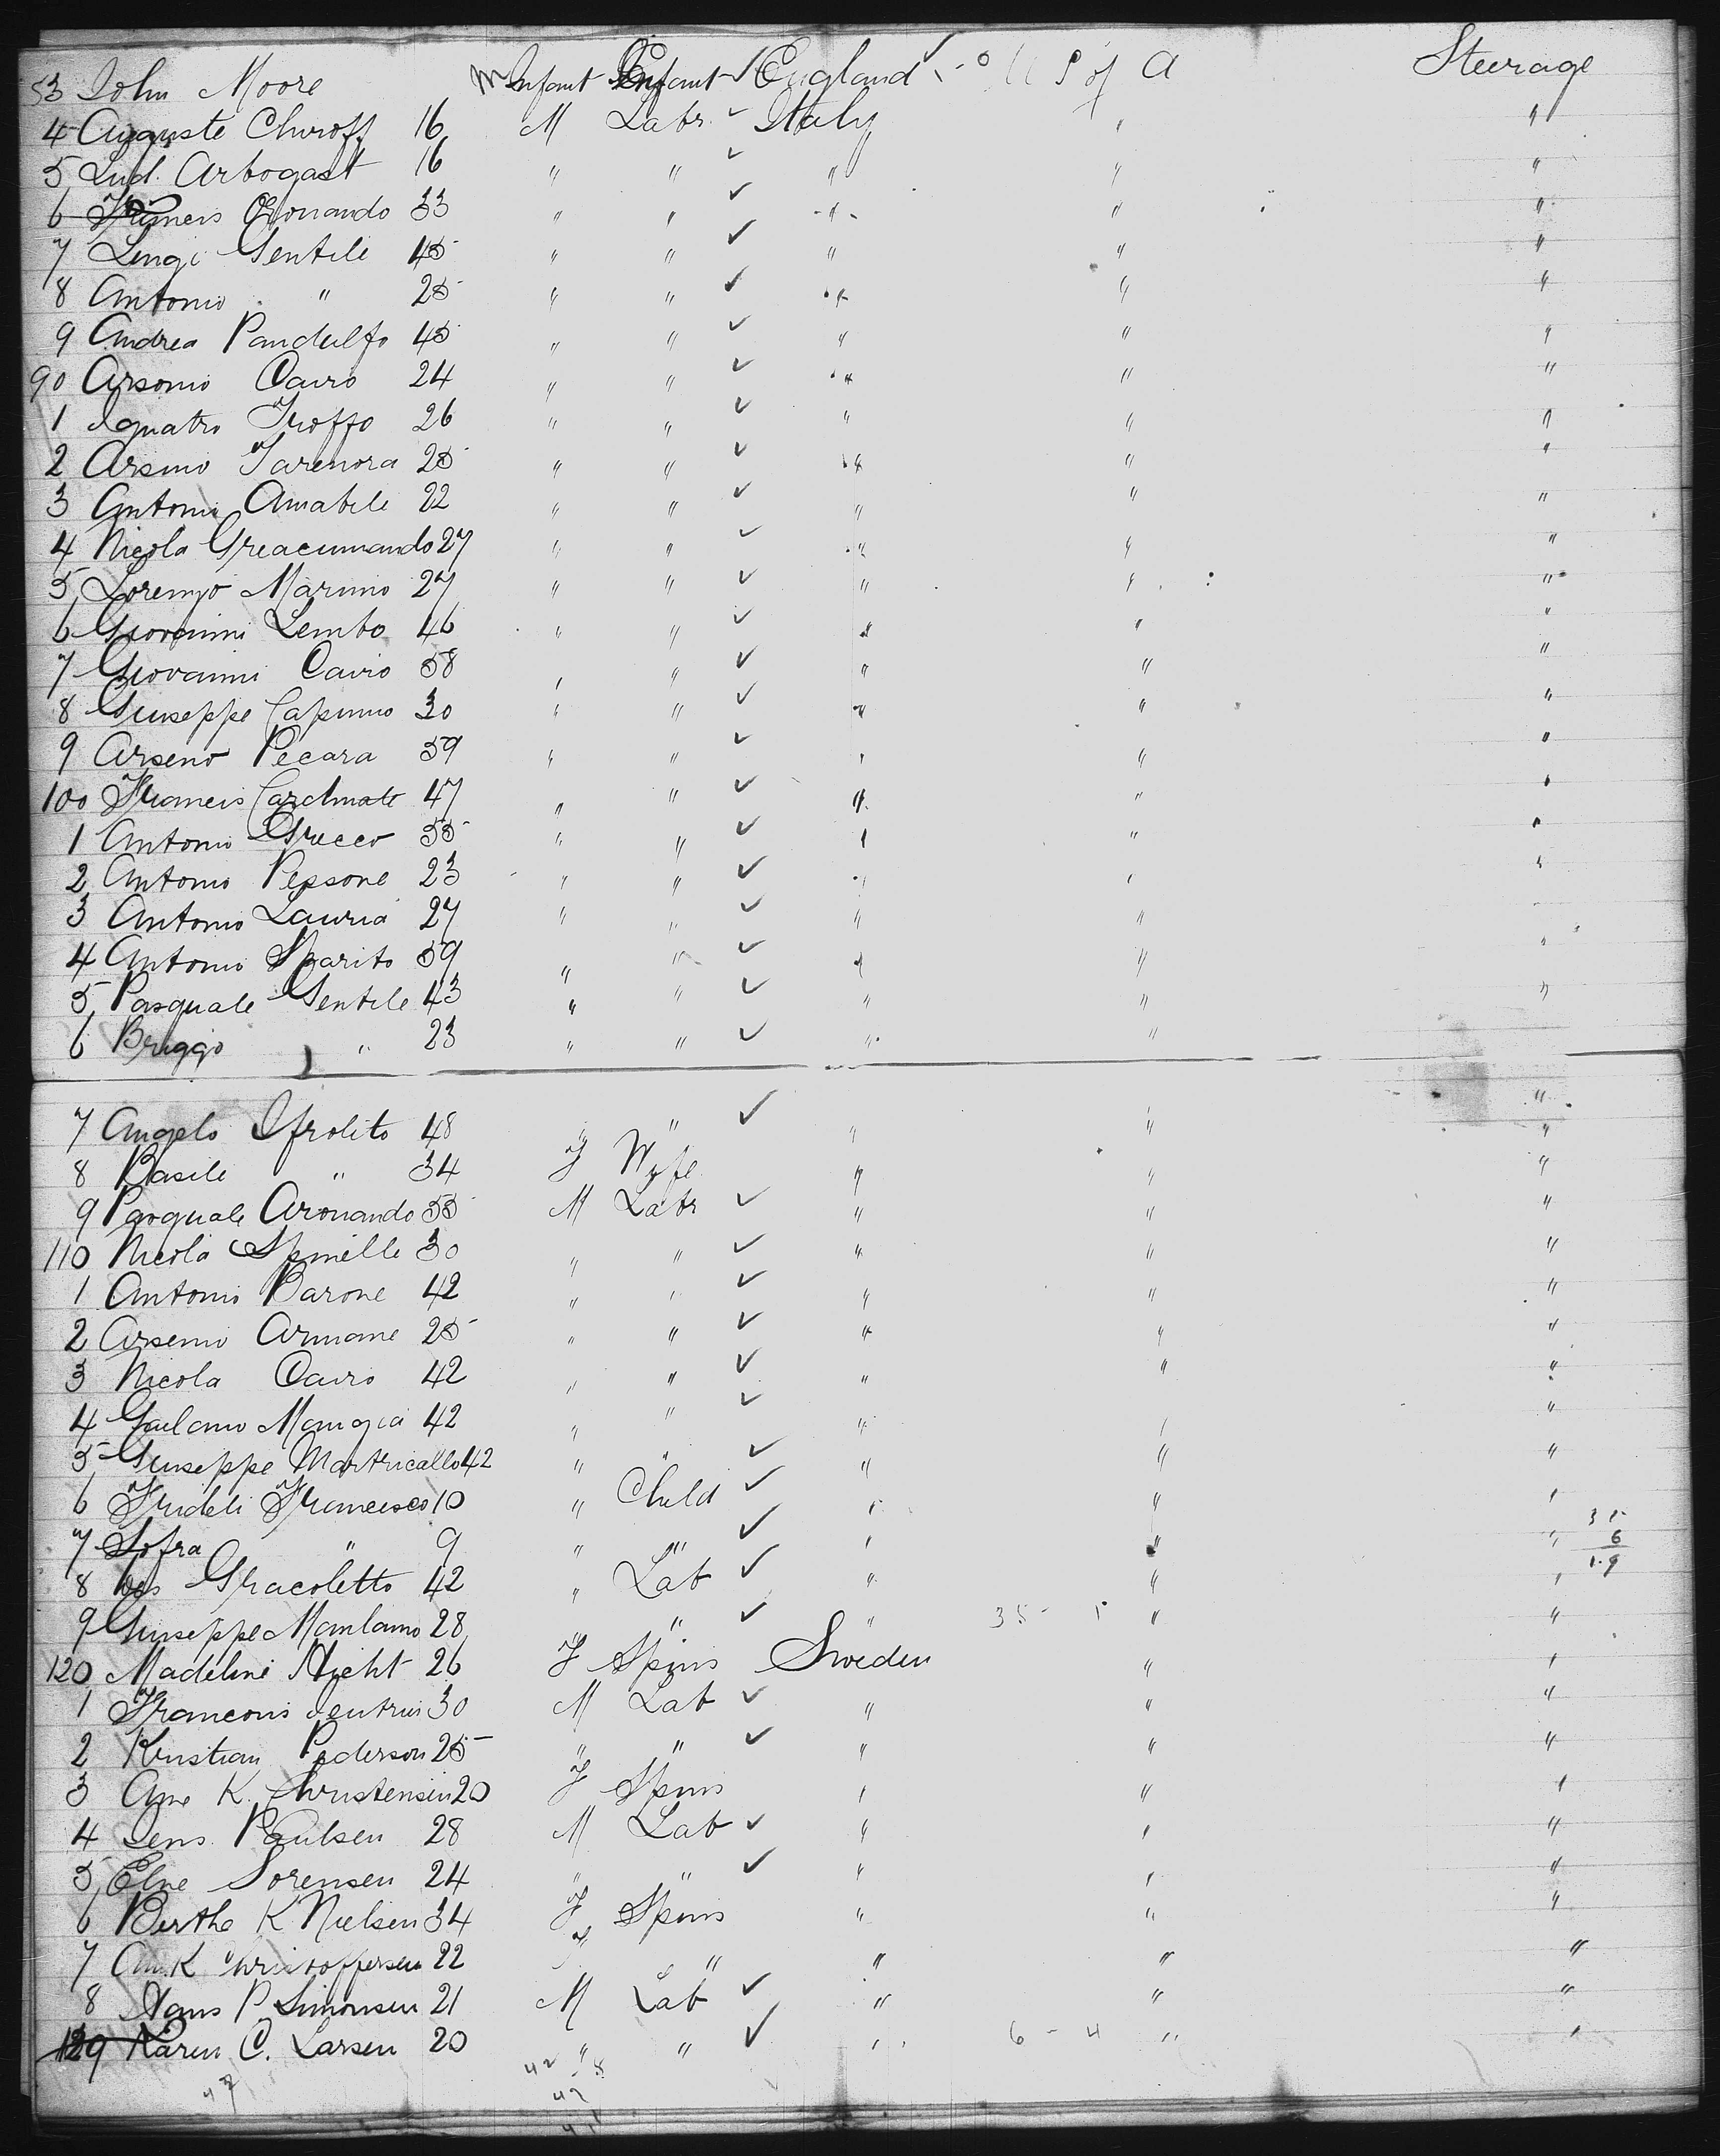 83 John Moore M Infant Infant ✓ England ✓ U S of A Steerage
4 Auguste Churoff 16 M Labr ✓ Italy " "
5 Lud. Arbogast 16 " " ✓ " " "
6 Francis Gronando 33 " " ✓ " " "
7 Lengi Gentile 45 " " ✓ " " "
8 Antonio " 25 " " ✓ " " "
9 Andrea Pandulfo 45 " " ✓ " " "
90 Arsonio Cairo 24 " " ✓ " " "
1 Ignatro Troffo 26 " " ✓ " " "
2 Arsino Tarenora 25 " " ✓ " " "
3 Antonio Amabile 22 " " ✓ " " "
4 Nicola Greacumando 27 " " ✓ " " "
5 Lorenzo Marino 27 " " ✓ " " "
6 Giovanni Lembo 46 " " ✓ " " "
7 Giovanni Cairo 58 " " ✓ " " "
8 Guiseppe Capunno 30 " " ✓ " " "
9 Arseno Pecara 39 " " ✓ " " "
100 Francis 47 " " ✓ " " "
1 Antonio Grecco 35 " " ✓ " " "
2 Antonio Pessone 23 " " ✓ " " "
3 Antonio Lauria 27 " " ✓ " " "
4 Antonio Sparito 39 " " ✓ " " "
5 Pasquale Gentile 43 " " ✓ " " "
6 Briggo " 23 " " ✓ " " "
7 Angelo Ifrolito 48 " " ✓ " " "
8 Basile " 34 F Wife " " "
9 Pasquale Aronando 35 M Labr ✓ " " "
110 Nicola Spinelle 30 " " ✓ " " "
1 Antonio Barone 42 " " ✓ " " "
2 Arsenio Armane 25 " " ✓ " " "
3 Nicola Cairo 42 " " ✓ " " "
4 Gaulano Mangia 42 " " ✓ " " "
5 Guiseppe Martricallo 42 " " ✓ " " "
6 Frideli Francisco 10 " Child ✓ " " "
7 Sofra " 9 " " ✓ " " "
8 Gracoletto 42 " Lab ✓ " " "
9 Guiseppe Manlamo 28 " " ✓ " 35 - 1 " "
120 Madeline Hicht 26 F Spins Sweden " "
1 Francois 30 M Lab ✓ " " "
2 Kristian Pederson 25 " " ✓ " " "
3 Ane K. Christensen 20 F Spins " " "
4 Jens Paulsen 28 M Lab ✓ " " "
5 Elne Sorensen 24 " " ✓ " " "
6 Berthe K Nielsen 34 F Spins " " "
7 An. K Christoffersen 22 " " " " "
8 Hans P Simonsen 21 M Lab ✓ " " "
129 Karen C. Larsen 20 " " ✓ " 6 - 4 " "